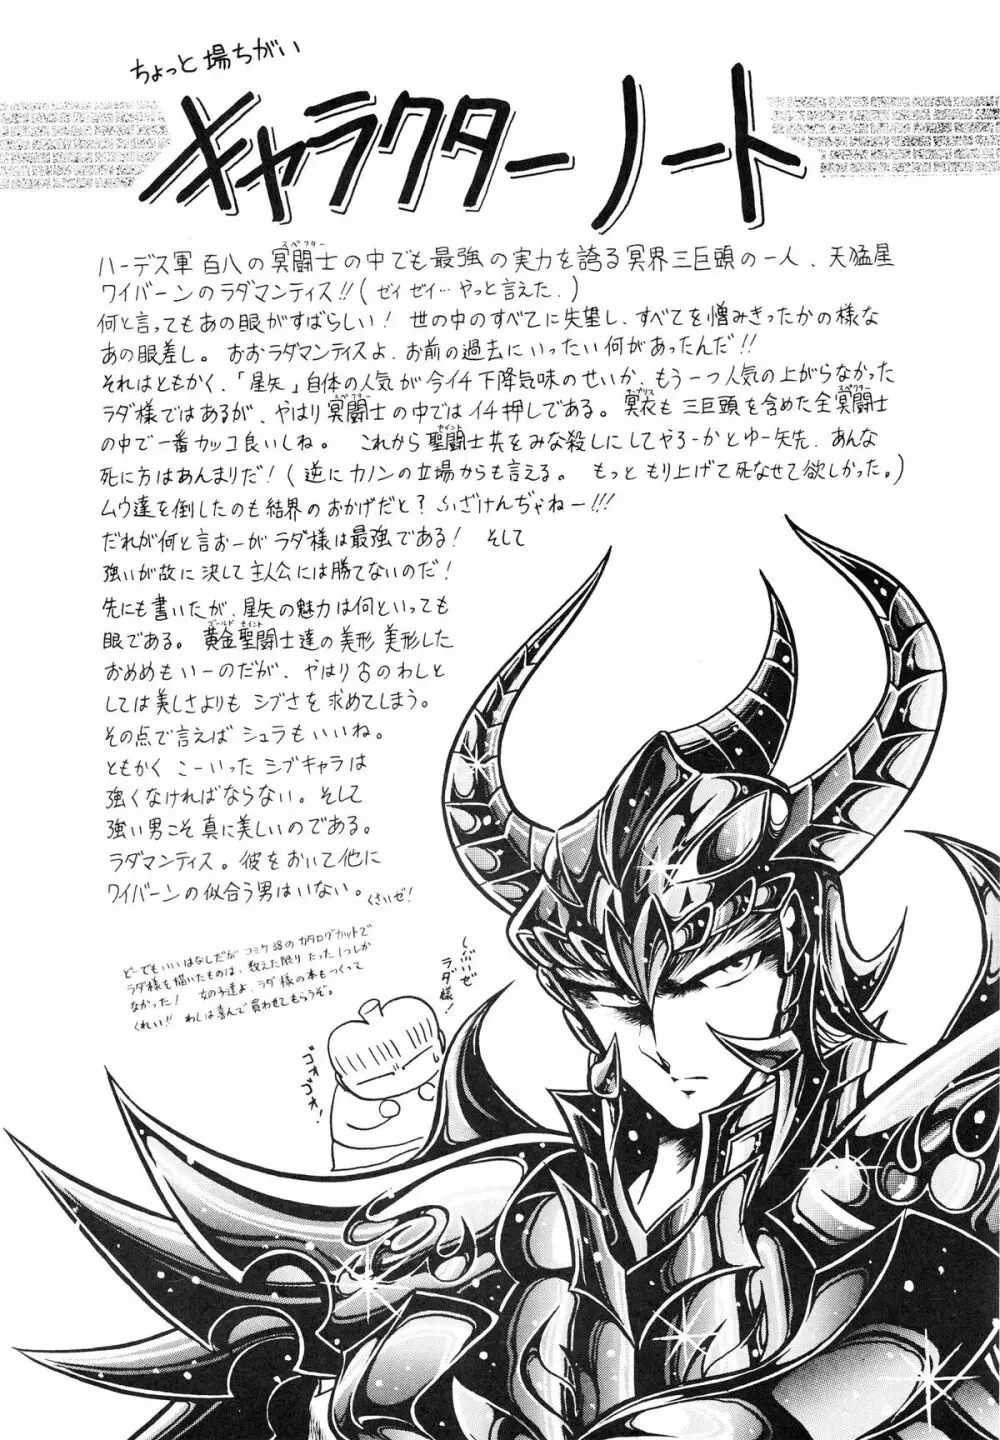 ちょっと場ちがい
キャラクターノート
スペクター
ハーデス軍 百八の冥闘士の中でも最強の実力を誇る冥界三巨頭の一人、天猛星
ワイバーンのラダマンティス!!(ゼイ ゼイ…やっと言えた。)
何と言ってもあの眼がすばらしい! 世の中のすべてに失望し、すべてを憎みきったかの様な
あの眼差し。おおラダマンティスよ、お前の過去にいったい何があったんだ!!
それはともかく、「星矢」自体の人気が今イチ下降気味のせいか、もう一つ人気の上がらなかった
スペクター サープリス スペクター
ラダ様ではあるが、やはり冥闘士の中ではイチ押しである。冥衣も三巨頭を含めた全冥闘士
セイント
の中で一番カッコ良いしね。 これから聖闘士共をみな殺しにしてやろーかとゆー矢先、あんな
死に方はあんまりだ!(逆にカノンの立場からも言える。 もっともり上げて死なせて欲しかった。)
ムウ達を倒したのも結界のおかげだと? ふざけんぢゃねー!!!
だれが何と言おーがラダ様は最強である! そして
強いが故に決して主人公には勝てないのだ!
先にも書いたが、星矢の魅力は何といっても
ゴールド セイント
眼である。黄金聖闘士達の美形 美形した
おめめもいーのだが、やはり古のわしと
しては美しさよりも シブさを求めてしまう。
その点で言えば シュラもいいね。
ともかく こーいった シブキャラは
強くなければならない。そして
強い男こそ真に美しいのである。
ラダマンティス。彼をおいて他に
ワイバーンの似合う男はいない。くさいゼ!
どーでもいいはなしだが コミケ38のカタログカットで
ラダ様を描いたものは、数えた限り たった1つしか
なかった! 女の子達よ、ラダ様の本もつくって
くれい!! わしは喜んで買わせてもらうぞ。
しぶいぜ
ラダ様!
ゴオゴオ!